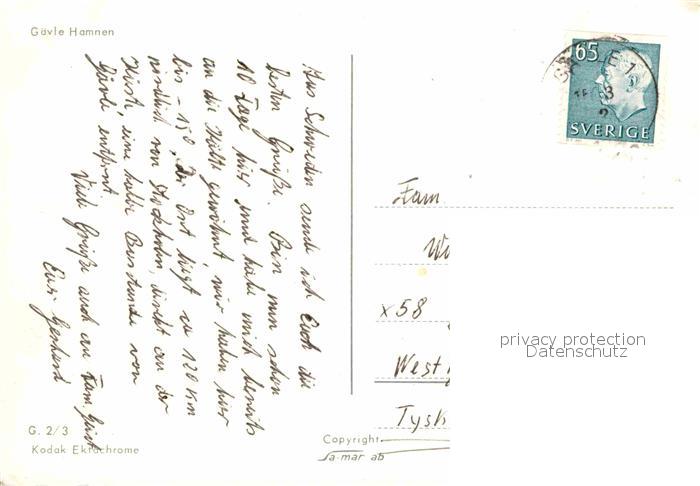 Gävle Hamnen
Aus Schweden sende ich Euch die
besten Grüße. Bin nun schon
10 Tage hier und habe mich bereits
an die Kälte gewöhnt wir haben hier
bis -15°. Der Ort liegt ca 120 km
nördlich von Stockholm, direkt an der
Küste, eine halbe Busstunde von
Gävle entfernt.
Viele Grüße auch an Fam.
Euer Gerhard
G. 2/3
Kodak Ektachrome
Copyright
Sa-mar ab
65
SVERIGE
Fam.
x 58
West
Tysk
privacy protection
Datenschutz